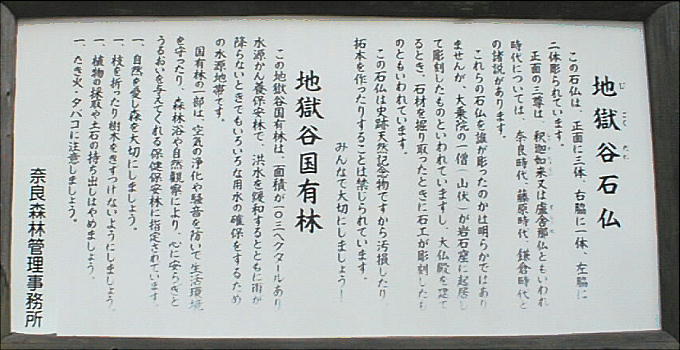 地獄谷石仏
この石仏は、正面に三体、右脇に一体、左脇に
二体彫られています。
正面の三尊は、釈迦如来又は盧舎那仏ともいわれ
時代については、奈良時代、藤原時代、鎌倉時代と
の諸説があります。
これらの石仏を誰が彫ったのかは明らかではあり
ませんが、大乗院の一僧(山伏)が岩石窟に起居し
て彫刻したものといわれていますし、大仏殿を建て
るとき、石材を掘り取ったときに石工が彫刻したも
のともいわれています。
この石仏は史跡天然記念物ですから汚損したり
拓本を作ったりすることは禁じられています。
みんなで大切にしましょう!
地獄谷国有林
この地獄谷国有林は、面積が一〇三ヘクタールあり
水源かん養保安林で、洪水を緩和するとともに雨が
降らないときでもいろいろな用水の確保をするため
の水源地帯です。
国有林の一部は、空気の浄化や騒音を防いで生活環境
を守ったり、森林浴や自然観察により、心に安らぎと
うるおいを与えてくれる保健保安林に指定されています。
一、自然を愛し森を大切にしましょう。
一、枝を折ったり樹木をきずつけないようにしましょう。
一、植物の採取や土石の持ち出しはやめましょう。
一、たき火・タバコに注意しましょう。
奈良森林管理事務所